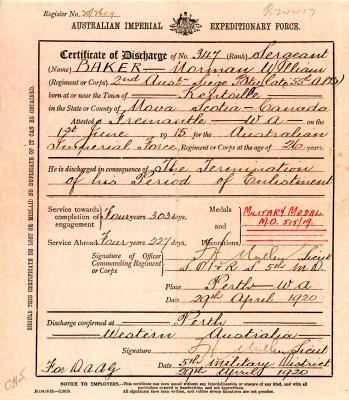 Register No.
AUSTRALIAN IMPERIAL EXPEDITIONARY FORCE.
Certificate of Discharge of No. 347 (Rank) Sergeant
(Name) BAKER Norman William
(Regiment or Corps) 2nd Aust. Siege
born at or near the Town of
in the State or County of Nova Scotia - Canada
Attested at Fremantle W A on the
1st June 1915 for the Australian
Imperial Force, Regiment or Corps, at the age of 26 years.
He is discharged in consequence of The Termination
of his Period of Enlistment
Service towards completion of engagement Four years 303 days.
Medals and Decorations
MILITARY MEDAL
M.O. 515/19.
Service Abroad Four years 227 days.
Signature of Officer Commanding Regiment or Corps
Lieut
5th M.D.
Place Perth W.A
Date 29th April 1920
Discharge confirmed at Perth
Western Australia
Signature Lieut
For DAAG
5th Military District
Date 29th April 1920
NOTICE TO EMPLOYERS.—This certificate has been issued without any interlineation or erasure of any kind, and with all particulars entered in handwriting, and not typewritten.
All signatures have been written, and rubber stamp signatures are irregular.
SHOULD THIS CERTIFICATE BE LOST OR MISLAID NO DUPLICATE OF IT CAN BE OBTAINED.